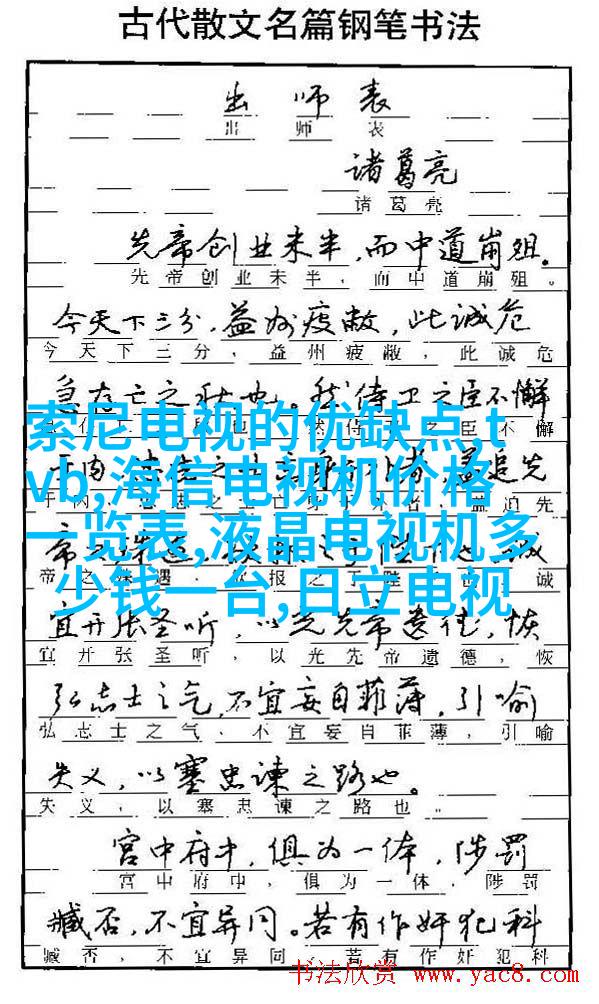 古代散文名篇钢笔书法
出师表
出师表
诸葛亮
诸葛亮
先帝创业未半，而中道崩殂。
先帝创业未半，而中道崩殂。
今天下三分，益州疲敝，此诚危
今天下三分，益州疲敝，此诚危
急存亡之秋也。然侍卫之臣不懈
之臣不懈
索尼电视的优缺点,t
盖追先
vb,海信电视机价格
盖追先
一览表,液晶电视机多
诚
帝之殊遇，欲报之于陛 诚
少钱一台,日立电视
宜开张圣听，以光先帝遗德，恢
宜开张圣听，以光先帝遗德，恢
弘志士之气，不宜妄自菲薄，引喻
弘志士之气，不宜妄自菲薄，引喻
失义，以塞忠谏之路也。
失义，以塞忠谏之路也。
宫中府中，俱为一体，陟罚
宫中府中，俱为一体，陟罚
臧否，不宜异同。若有作奸犯科
臧否，不宜异同。若有作奸犯科
书法欣赏 www.yac8.com